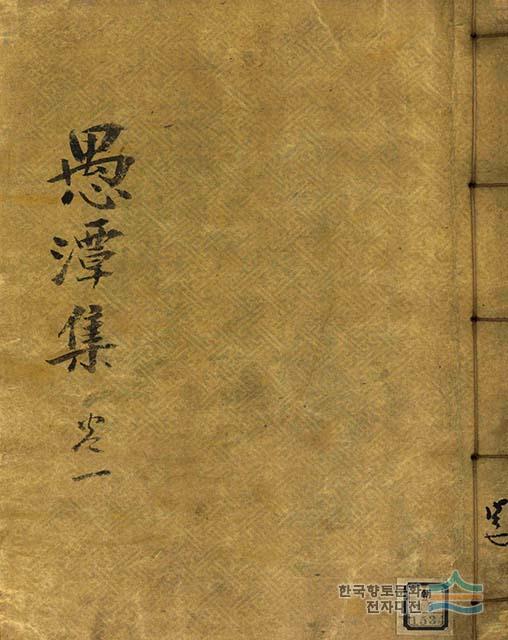 愚潭集
卷一
한국향토문화
전자대전
朝
1534